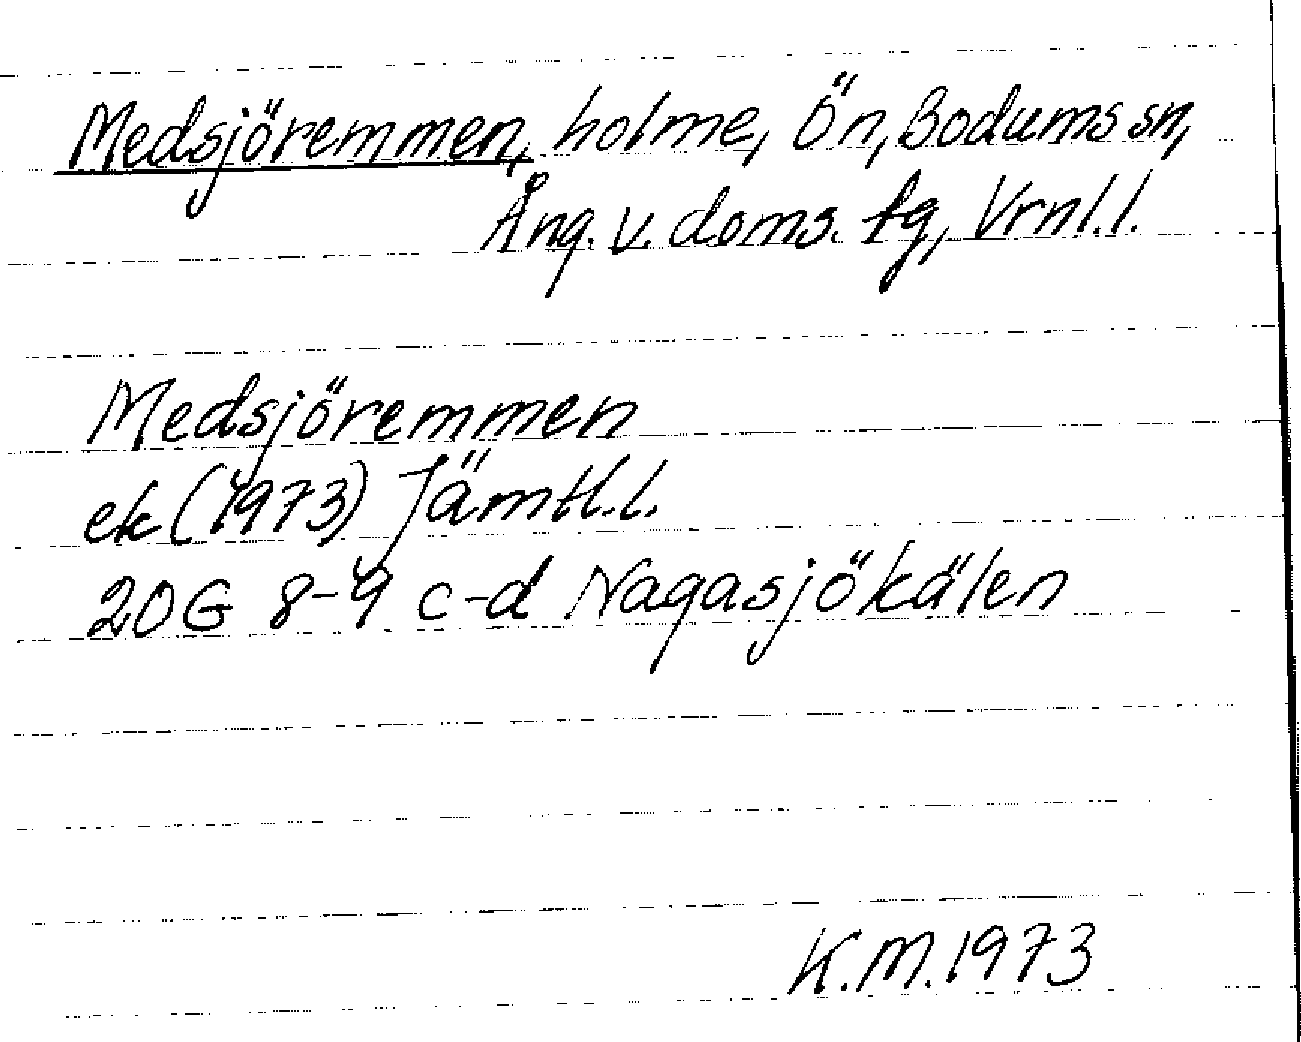 Medsjöremmen, holme, Ön, Bodums sn,
Ång. v. doms. tg, Vrnl.l.
Medsjöremmen
ek (1973) Jämtl.l.
20G 8-9 c-d Nagasjökälen
K.M. 1973